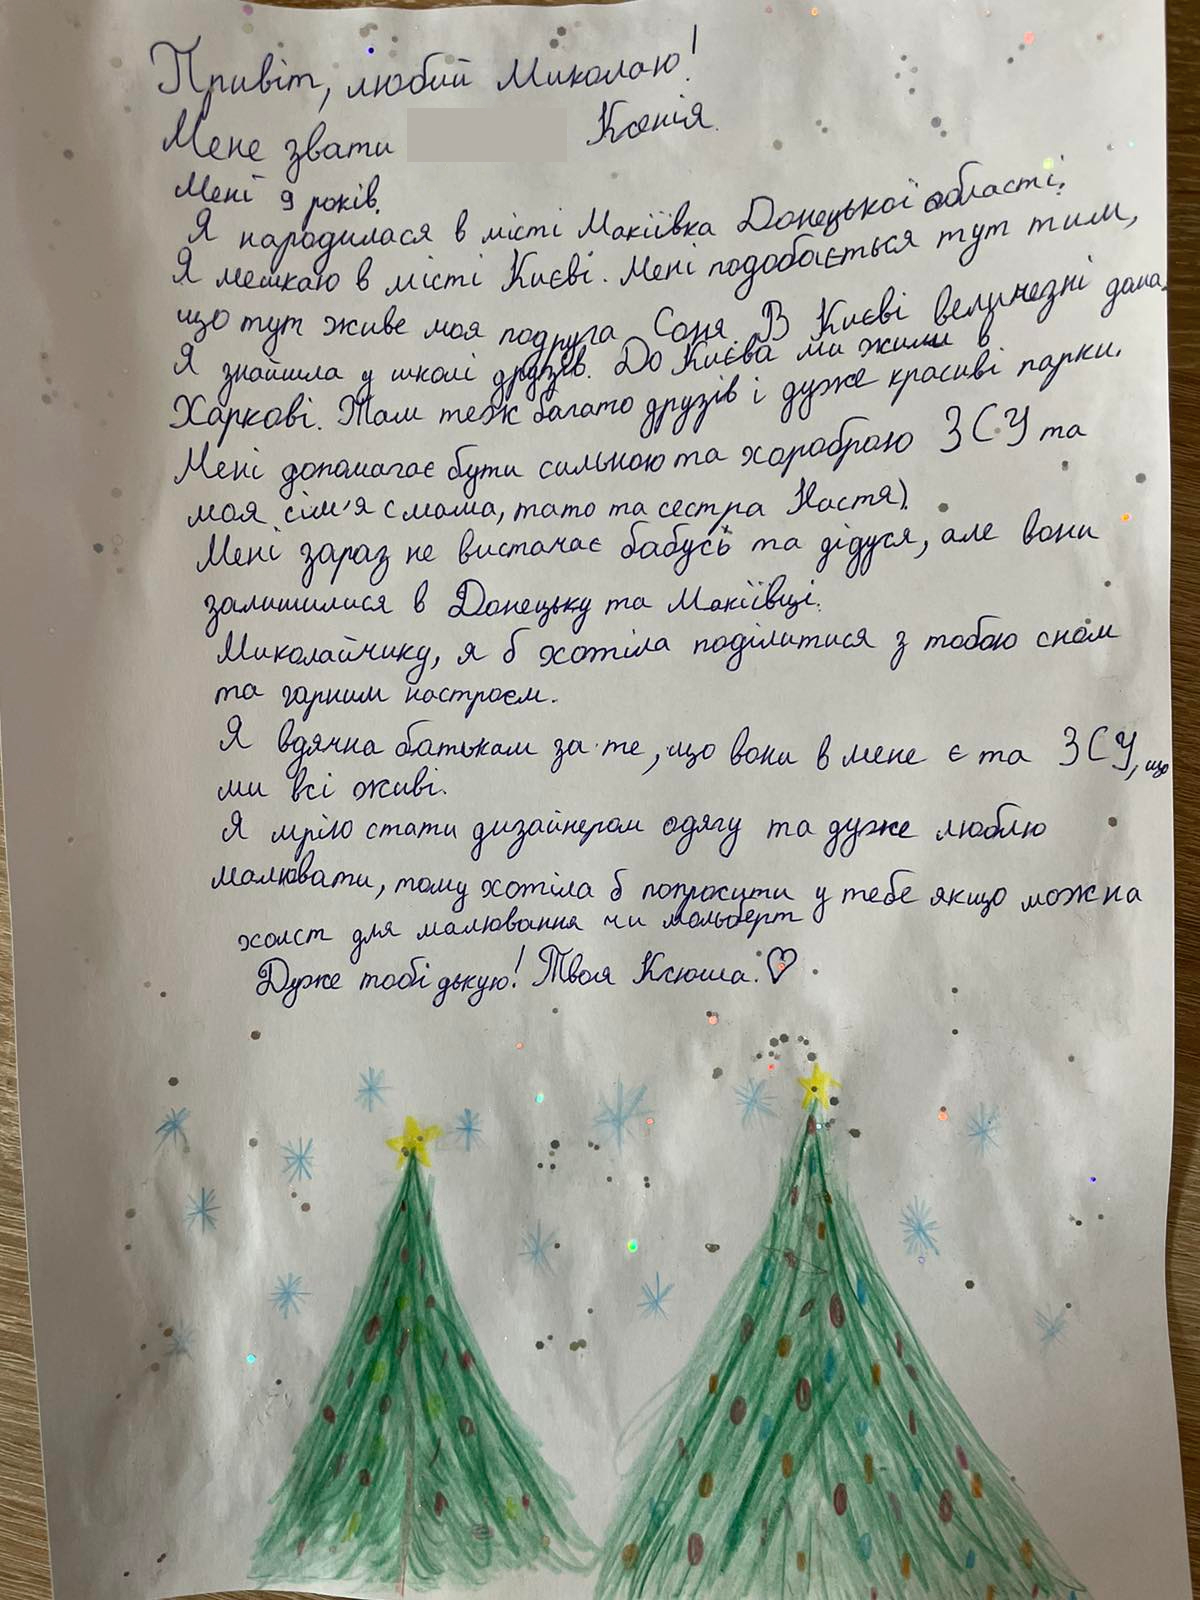 Привіт, любий Миколаю!
Мене звати Ксенія.
Мені 9 років.
Я народилася в місті Макіївка Донецької області.
Я мешкаю в місті Києві. Мені подобається тут тим,
що тут живе моя подруга Соня. В Києві величезні дома.
Я знайшла у школі друзів. До Києва ми жили в
Харкові. Там теж багато друзів і дуже красиві парки.
Мені допомагає бути сильною та хороброю ЗСУ та
моя сім'я (мама, тато та сестра Настя).
Мені зараз не вистачає бабусь та дідуся, але вони
залишилися в Донецьку та Макіївці.
Миколайчику, я б хотіла поділитися з тобою сном
та гарним настроєм.
Я вдячна батькам за те, що вони в мене є та ЗСУ, що
ми всі живі.
Я мрію стати дизайнером одягу та дуже люблю
малювати, тому хотіла б попросити у тебе якщо можна
холст для малювання чи мольберт
Дуже тобі дякую! Твоя Ксюша. ♡